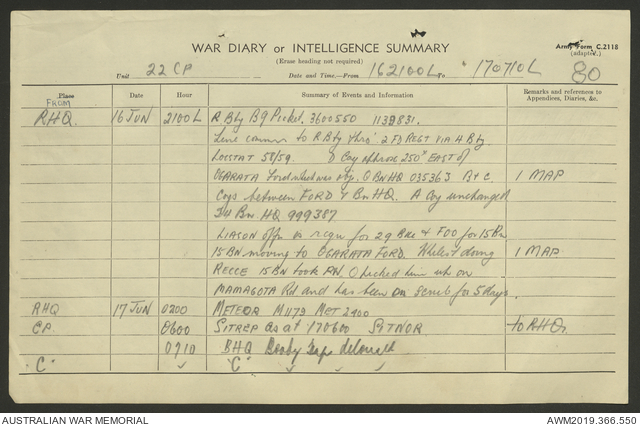 Army Form C.2118
(adapted.)
WAR DIARY or INTELLIGENCE SUMMARY
(Erase heading not required)
80
Unit 22 CP Date and Time.—From 162100L to 170710L
Place Date Hour Summary of Events and Information Remarks and references to Appendices, Diaries, &c.
FROM
RHQ. 16 JUN 2100L R Bty Bg Picket. 3600550 1139831.
Line comm to R Bty thro' 2 FD REGT VIA H Bty.
LOCSTAT 58/59. D Coy approx 250* EAST of
OGARATA Ford which was obj. BN HQ 035363 B & C 1 MAP
Coys between FORD & BN HQ. A Coy unchanged
34 Bn HQ 999387
LIASON offr is requ for 29 Bde & FOO for 15 Bn
15 BN moving to OGARATA FORD. Whilest doing 1 MAP
RECCE 15 BN took PW who on
MAMAGOTA Rd and has been in scrub for 5 days.
RHQ 17 JUN 0200 METEOR M1173 MET 2400
CP 0600 SITREP as at 170600 SITNOR to RHQ.
0710 BHQ Booby Traps
"C" "C"
AUSTRALIAN WAR MEMORIAL AWM2019.366.550